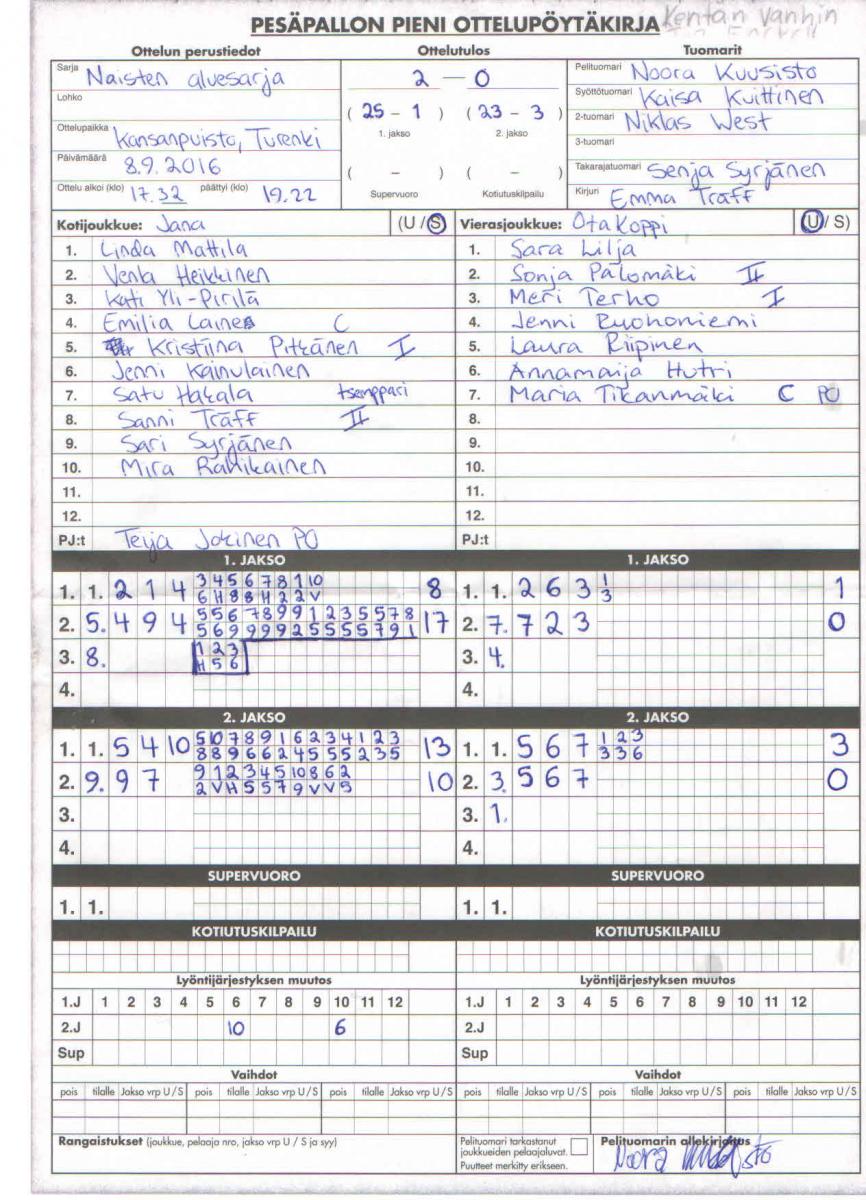 PESÄPALLON PIENI OTTELUPÖYTÄKIRJA Kentän vanhin
Ottelun perustiedot Ottelutulos Tuomarit
Sarja Naisten aluesarja
Lohko
Ottelupaikka Kansanpuisto, Turenki
Päivämäärä 8.9.2016
Ottelu alkoi (klo) 17.32 päättyi (klo) 19.22
2 – 0
( 25 – 1 ) ( 23 – 3 )
1. jakso 2. jakso
( – ) ( – )
Supervuoro Kotiutuskilpailu
Pelituomari Noora Kuusisto
Syöttötuomari Kaisa Kuittinen
2-tuomari Niklas West
3-tuomari
Takarajatuomari Senja Syrjänen
Kirjuri Emma Träff
Kotijoukkue: Jana (U/S)
1. Linda Mattila
2. Venla Heikkinen
3. Kati Yli-Pirilä
4. Emilia Laine C
5. Kristiina Pitkänen I
6. Jenni Kainulainen
7. Satu Hakala tsemppari
8. Sanni Träff II
9. Sari Syrjänen
10. Mira Rahikainen
11.
12.
PJ:t Teija Jokinen PO
Vierasjoukkue: Ota Koppi (U/S)
1. Sara Lilja
2. Sonja Palomäki II
3. Meri Terho I
4. Jenni Ruohoniemi
5. Laura Riipinen
6. Annamaija Hutri
7. Maria Tikanmäki C PO
8.
9.
10.
11.
12.
PJ:t
1. JAKSO
1. 1. 2 1 4 3 4 5 6 7 8 1 10 8
6 H 8 8 H 2 2 V
2. 5. 4 9 4 5 5 6 7 8 9 9 1 2 3 5 5 7 8 17
5 6 9 9 9 9 2 5 5 5 5 7 9 1
3. 8. 1 2 3
H 5 6
4.
1. JAKSO
1. 1. 2 6 3 1 1
3
2. 7. 7 2 3 0
3. 4.
4.
2. JAKSO
1. 1. 5 4 10 5 10 7 8 9 1 6 2 3 4 1 2 3 13
8 8 9 6 6 2 4 5 5 5 2 3 5
2. 9. 9 7 9 1 2 3 4 5 10 8 6 2 10
2 V H 5 5 7 9 V V 5
3.
4.
2. JAKSO
1. 1. 5 6 7 1 2 3 3
3 3 6
2. 3. 5 6 7 0
3. 1.
4.
SUPERVUORO SUPERVUORO
1. 1. 1. 1.
KOTIUTUSKILPAILU KOTIUTUSKILPAILU
Lyöntijärjestyksen muutos Lyöntijärjestyksen muutos
1.J 1 2 3 4 5 6 7 8 9 10 11 12 1.J 1 2 3 4 5 6 7 8 9 10 11 12
2.J 10 6 2.J
Sup Sup
Vaihdot Vaihdot
pois tilalle Jakso vrp U/S pois tilalle Jakso vrp U/S pois tilalle Jakso vrp U/S pois tilalle Jakso vrp U/S pois tilalle Jakso vrp U/S pois tilalle Jakso vrp U/S
Rangaistukset (joukkue, pelaaja nro, jakso vrp U / S ja syy)
Pelituomari tarkastanut
joukkueiden pelaajaluvat.
Puutteet merkitty erikseen.
Pelituomarin allekirjoitus
Noora